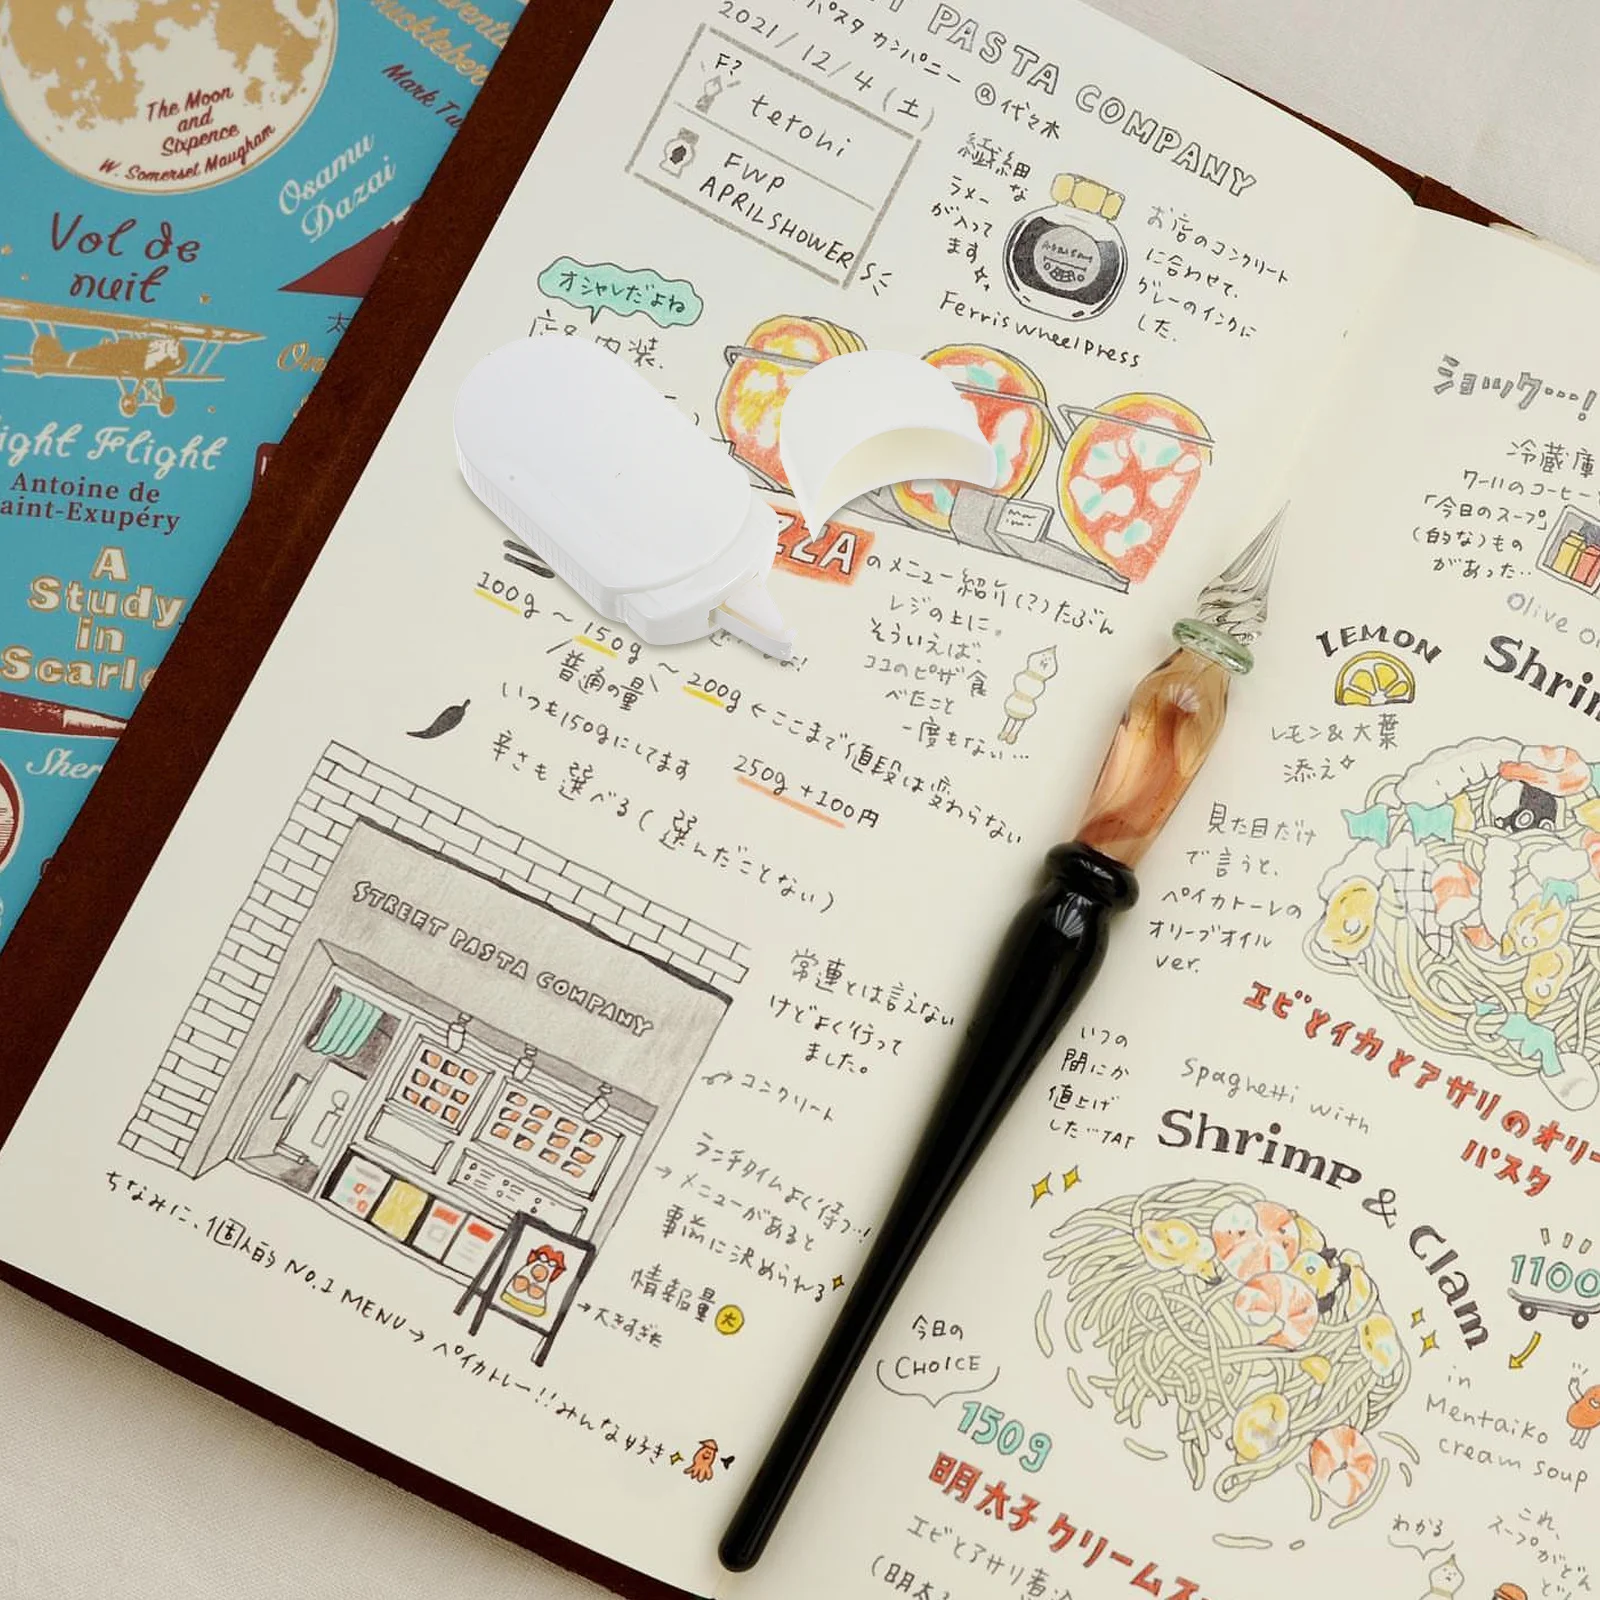 The Moon
and
Sixpence
W. Somerset Maugham
Mark Tw
Osamu
Dazai
Vol de
nuit
ight Flight
Antoine de
aint-Exupéry
A
Study
in
Scarle
Sher
PASTA COMPANY
パスタ カンパニー @代々木
2021/12/4(土)
F?
tetoni
FWP
APRILSHOWERS
繊細
な
ラメー
が入って
ます
Ferriswheelpress
お店のコンクリート
に合わせて、
グレーのインクに
した。
オシャレだよね
内装.
ZZA のメニュー紹介(?)たぶん
レジの上に。
そういえば、
ココのピザ食
べたこと
一度もない…
100g ~ 150g ~ 200g ←ここまで値段は変わらない
普通の量
いつも150gにしてます
250g +100円
辛さも選べる(選んだことない)
STREET PASTA COMPANY
常連とは言えない
けどよく行って
ました。
→コンクリート
ランチタイムよく待つ…!
→メニューがあると
事前に決められる
情報量 大
→大きすぎた
ちなみに、個人的 NO.1 MENU→ ペイカトレー!!みんな好き
ショック…!
冷蔵庫
ワールのコーヒー
「今日のスープ」
(的な)もの
があった…
Olive O
Shrim
LEMON
レモン&大葉
添え
見た目だけ
で言うと、
ペイカトーレの
オリーブオイル
ver.
エビとイカとアサリのオリー
パスタ
いつの
間にか
値上げ
した…TAT
Spaghetti with
Shrimp & Clam
1100
in
Mentaiko
cream soup
今日の
CHOICE
150g
明太子クリームス
エビとアサリ
(明太
わかる
これ、
スープがどん